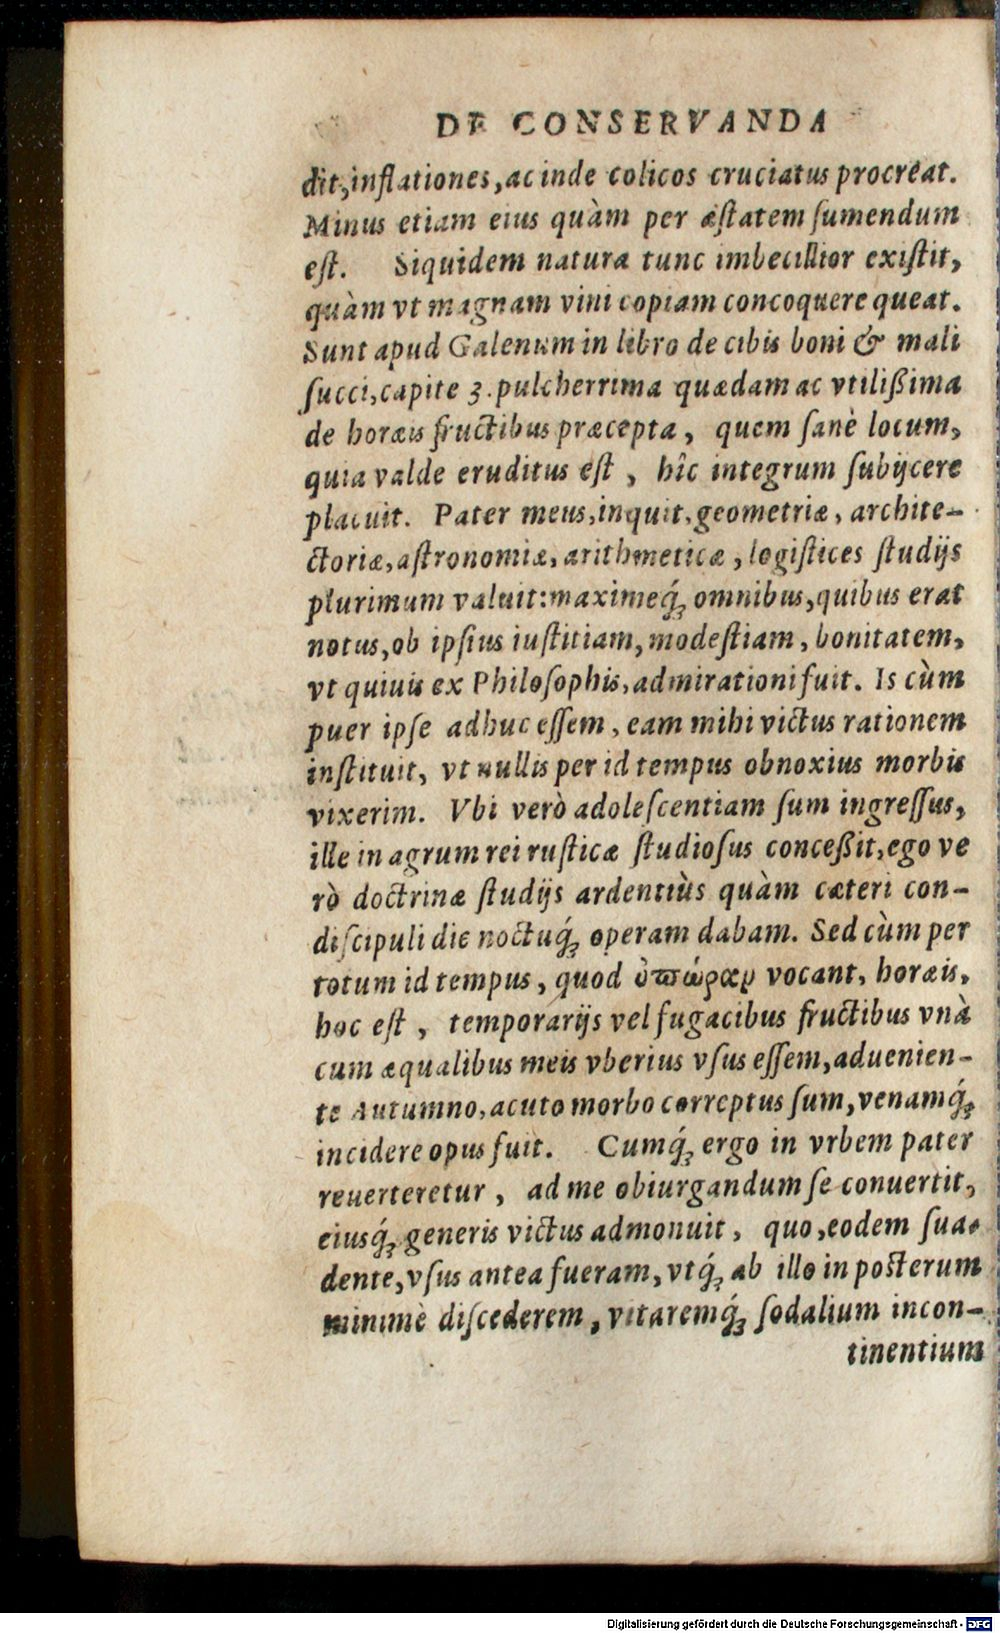 DE CONSERVANDA
dit, inflationes, ac inde colicos cruciatus procreat.
Minus etiam eius quàm per æſtatem ſumendum
eſt. Siquidem natura tunc imbecillior exiſtit,
quàm vt magnam vini copiam concoquere queat.
Sunt apud Galenum in libro de cibis boni & mali
ſucci, capite 3. pulcherrima quædam ac vtilißima
de horæis fructibus præcepta, quem ſanè locum,
quia valde eruditus eſt, hîc integrum ſubijcere
placuit. Pater meus, inquit, geometriæ, archite-
ctoriæ, aſtronomiæ, arithmeticæ, logiſtices ſtudijs
plurimum valuit: maximeq́ꝫ omnibus, quibus erat
notus, ob ipſius iuſtitiam, modeſtiam, bonitatem,
vt quiuis ex Philoſophis, admirationi fuit. Is cùm
puer ipſe adhuc eſſem, eam mihi victus rationem
inſtituit, vt nullis per id tempus obnoxius morbis
vixerim. Vbi verò adoleſcentiam ſum ingreſſus,
ille in agrum rei ruſticæ ſtudioſus conceßit, ego ve
rò doctrinæ ſtudijs ardentiùs quàm cæteri con-
diſcipuli die noctuq́ꝫ operam dabam. Sed cùm per
totum id tempus, quod ὀπώραρ vocant, horæis,
hoc eſt, temporarijs vel fugacibus fructibus vnà
cum æqualibus meis vberius vſus eſſem, aduenien-
te Autumno, acuto morbo correptus ſum, venamq́ꝫ
incidere opus fuit. Cumq́ꝫ ergo in vrbem pater
reuerteretur, ad me obiurgandum ſe conuertit,
eiusq́ꝫ generis victus admonuit, quo, eodem ſua-
dente, vſus antea fueram, vtq́ꝫ ab illo in poſterum
minimè diſcederem, vitaremq́ꝫ ſodalium incon-
tinentium
Digitalisierung gefördert durch die Deutsche Forschungsgemeinschaft - DFG